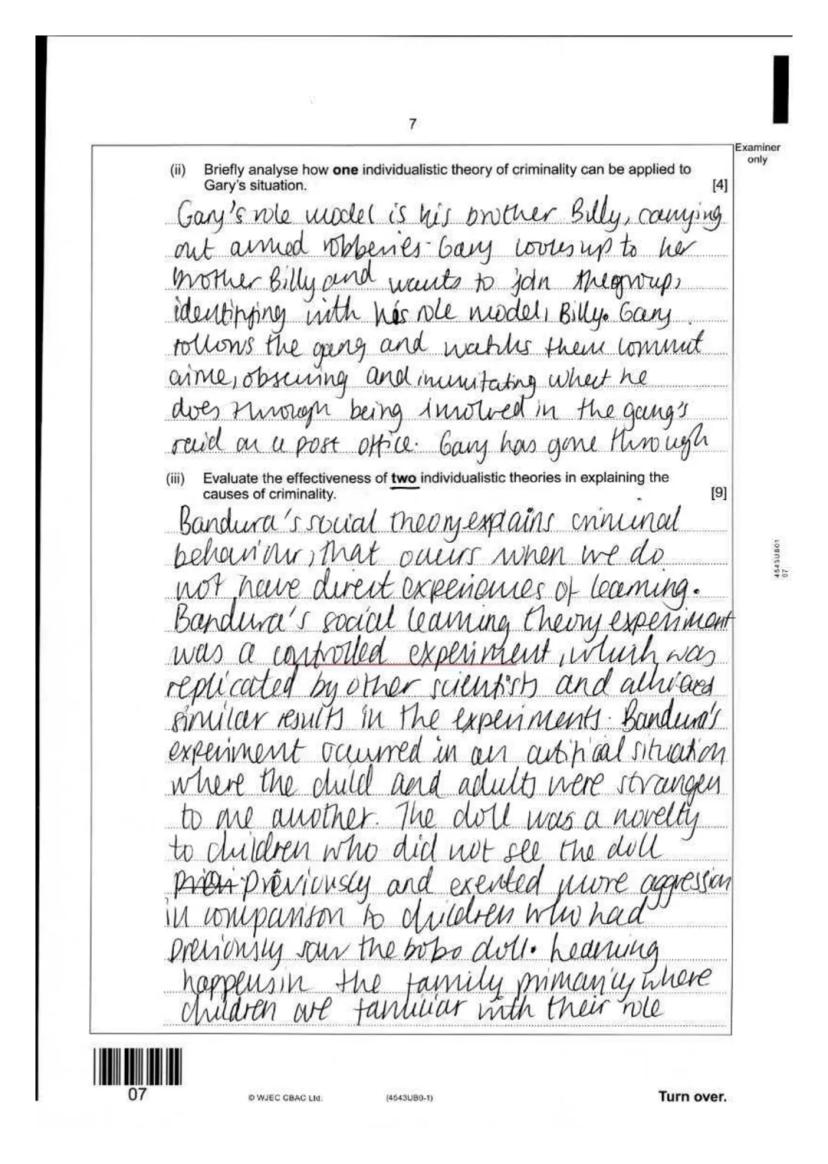 7
Examiner
only
(ii) Briefly analyse how one individualistic theory of criminality can be applied to
Gary's situation. [4]
Gary's role model is his brother Billy, carrying
out armed robberies. Gary looks up to her
brother Billy and wants to join the group,
identifying with his role model, Billy. Gary
follows the gang and watches them commit
crime, observing and immitating what he
does through being involved in the gang's
raid on a post office. Gary has gone through
(iii) Evaluate the effectiveness of two individualistic theories in explaining the
causes of criminality. [9]
Bandura's social theory explains criminal
behaviour, that occurs when we do
not have direct experiences of learning.
Bandura's social learning theory experiment
was a controlled experiment, which was
replicated by other scientists and achieved
similar results in the experiments. Bandura's
experiment occurred in an artifical situation
where the child and adults were strangers
to one another. The doll was a novelty
to children who did not see the doll
previously and exerted more aggression
in comparison to children who had
previously saw the bobo doll. Learning
happens in the family primarily where
children are familiar with their role
4543UB01
07
07
© WJEC CBAC Ltd.
(4543UB0-1)
Turn over.